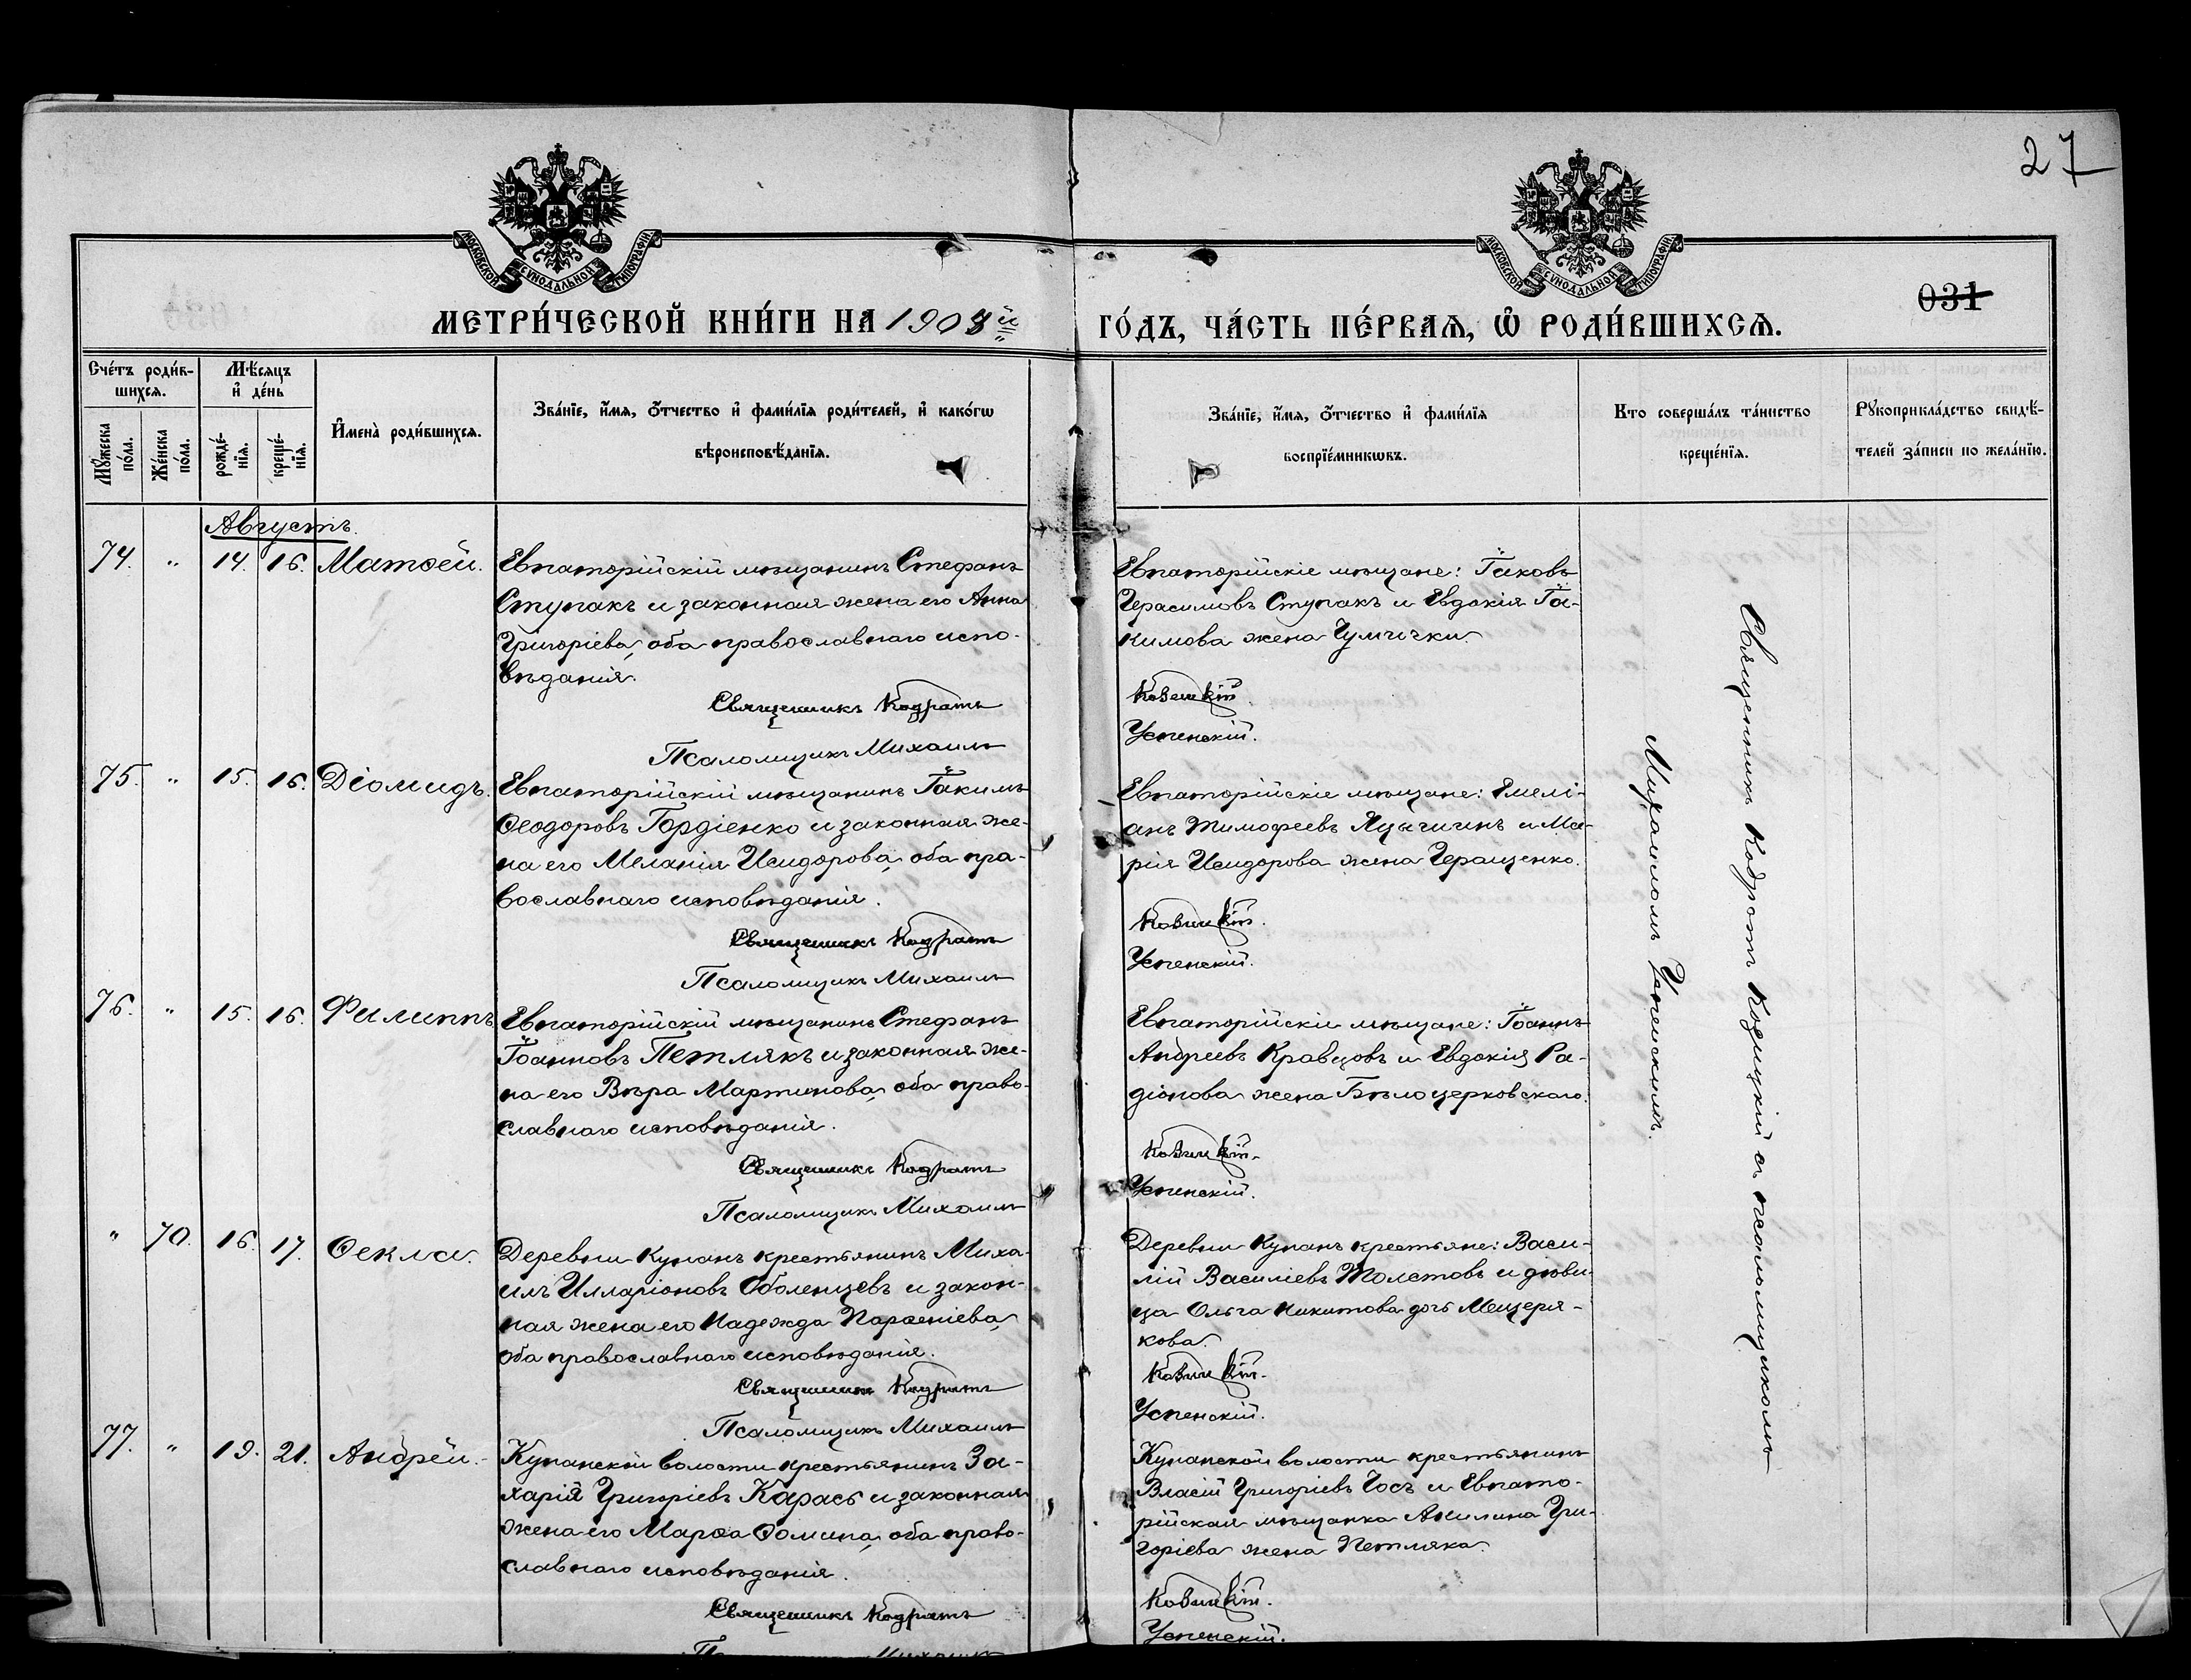 27
МОСКОВСКОЙ СѴНОДАЛЬНОЙ ТИПОГРАФІИ.
МОСКОВСКОЙ СѴНОДАЛЬНОЙ ТИПОГРАФІИ.
031
МЕТРИ́ЧЕСКОЙ КНИ́ГИ НА 1908й
ГО́ДЪ, ЧА́СТЬ ПЕ́РВАЯ, Ѿ РОДИ́ВШИХСѦ.
Сче́тъ роди́в-
шихсѧ.
Мꙋжеска по́ла.
Же́нска по́ла.
Мѣ́сѧцъ
и҆ де́нь
рожде́-
нїѧ.
креще́-
нїѧ.
И҆мена̀ роди́вшихсѧ.
Зва́нїе, и҆́мѧ, ѻ҆́тчество и҆ фами́лїѧ роди́телей, и҆ како́гѡ
вѣроисповѣ́данїѧ.
Зва́нїе, и҆́мѧ, ѻ҆́тчество и҆ фами́лїѧ
воспрїе́мникѡвъ.
Кто соверша́лъ та́инство
креще́нїѧ.
Рꙋкоприкла́дство свидѣ́-
телей за́писи по жела́нїю.
Августъ.
74. " 14. 16. Матѳей.
Евпаторійскій мѣщанинъ Стефанъ
Ступакъ и законная жена его Анна
Григоріева, оба православнаго испо-
вѣданія.
Священникъ Кодратъ
Псаломщикъ Михаилъ
Евпаторійскіе мѣщане: Іаковъ
Герасимовъ Ступакъ и Евдокія Іа-
кимова жена Гумички.
Успенскій.
75. " 15. 16. Діомидъ.
Евпаторійскій мѣщанинъ Іакимъ
Ѳеодоровъ Гордіенко и законная же-
на его Меланія Исидорова, оба пра-
вославнаго исповѣданія.
Священникъ Кодратъ
Псаломщикъ Михаилъ
Евпаторійскіе мѣщане: Емелі-
анъ Тимофеевъ и Ма-
рія Исидорова жена Геращенко.
Успенскій.
76. " 15. 16. Филиппъ
Евпаторійскій мѣщанинъ Стефанъ
Іоанновъ Петлякъ и законная же-
на его Вѣра Мартинова, оба право-
славнаго исповѣданія.
Священникъ Кодратъ
Псаломщикъ Михаилъ
Евпаторійскіе мѣщане: Іоаннъ
Андреевъ Кравцовъ и Евдокія Ра-
діонова жена Бѣлоцерковскаго.
Успенскій.
" 70. 16. 17. Ѳекла.
Деревни Купанъ крестьянинъ Миха-
илъ Илларіоновъ Оболенцевъ и закон-
ная жена его Надежда Парѳеніева,
оба православнаго исповѣданія.
Священникъ Кодратъ
Псаломщикъ Михаилъ
Деревни Купанъ крестьяне: Васи-
лій Василіевъ Толстовъ и дѣви-
ца Ольга Никитова дочь Мещеря-
кова.
Успенскій.
77. " 19. 21. Андрей.
Купанской волости крестьянинъ За-
харій Григоріевъ Карась и законная
жена его Марѳа Ѳомина, оба право-
славнаго исповѣданія.
Священникъ Кодратъ
Купанской волости крестьянинъ
Власій Григоріевъ и Евпато-
рійская мѣщанка Акилина Гри-
горіева жена Петляка.
Успенскій.
Священникъ Кодратъ съ псаломщикомъ
Михаиломъ Успенскимъ.